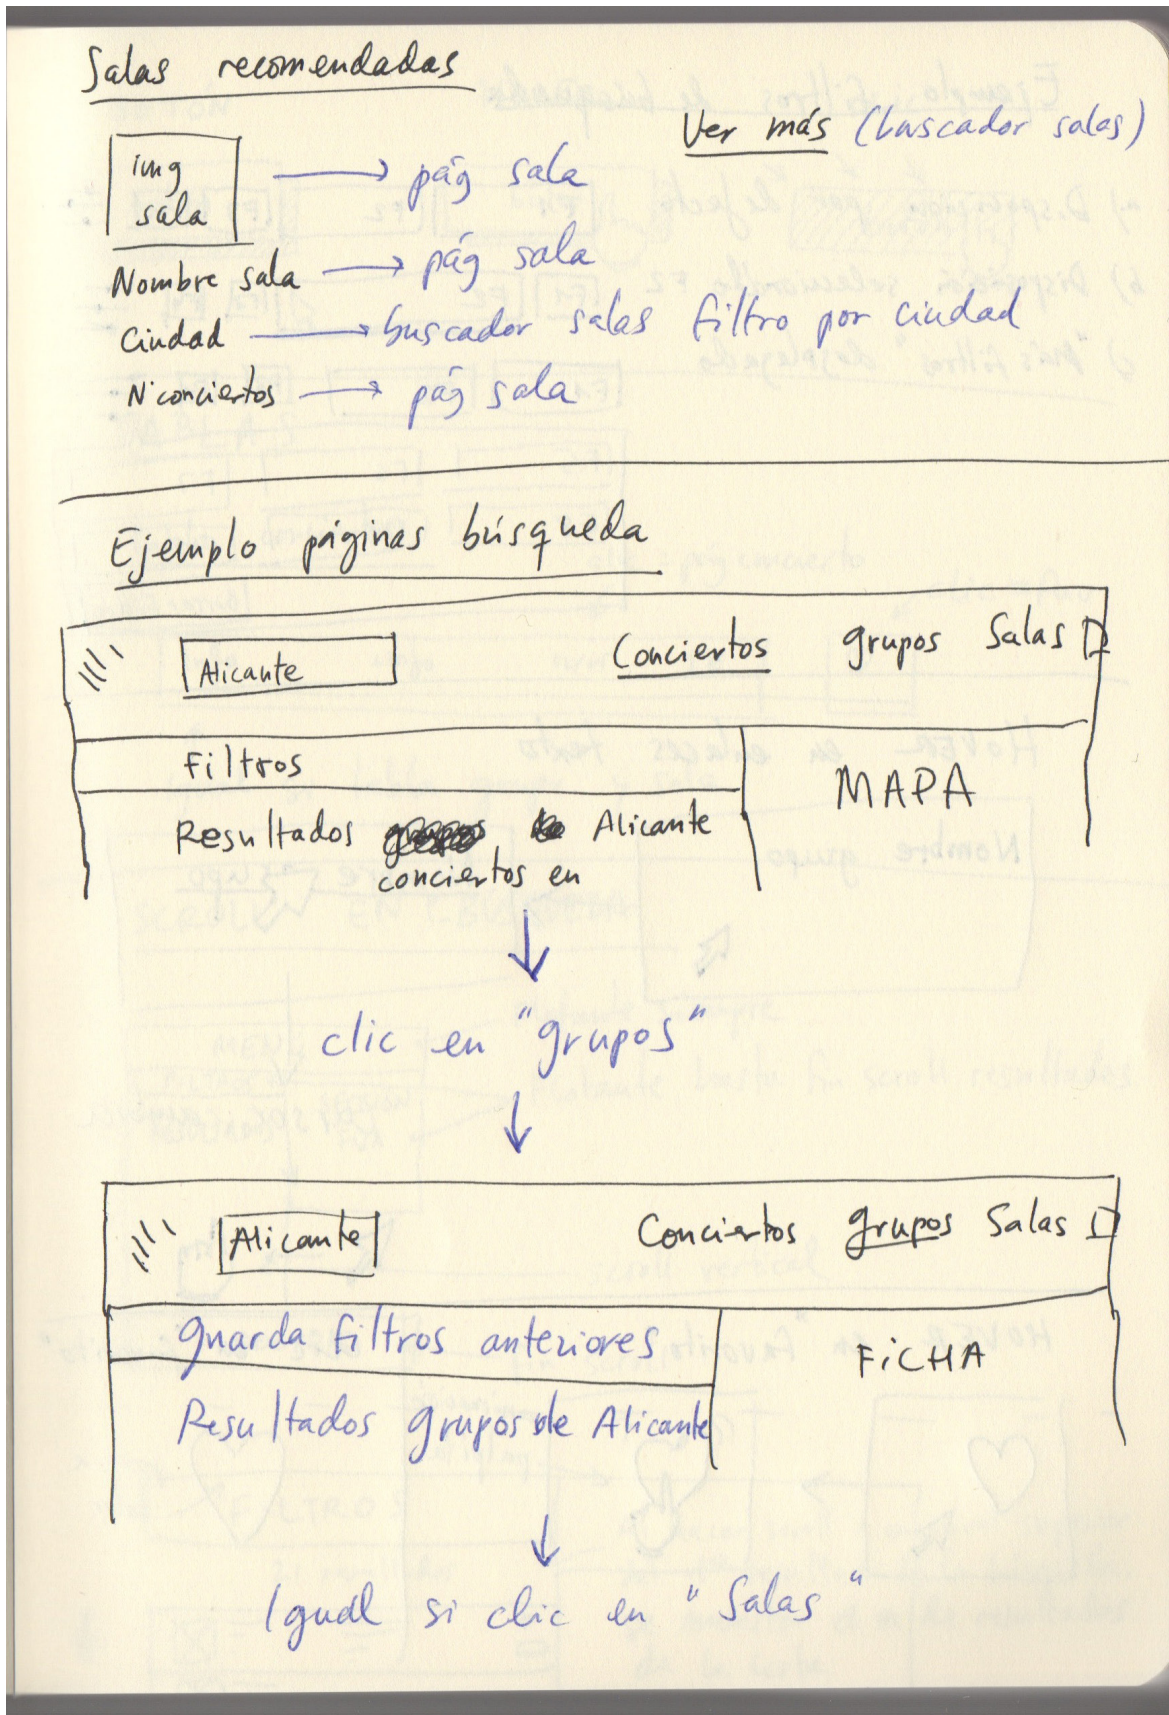 Salas recomendadas
Ver más (buscador salas)
img
sala
→ pág sala
Nombre sala → pág sala
Ciudad → buscador salas filtro por ciudad
Nº conciertos → pág sala
Ejemplo páginas búsqueda
Alicante
Conciertos grupos Salas
Filtros
MAPA
Resultados Alicante
conciertos en
clic en "grupos"
Alicante
Conciertos grupos Salas
guarda filtros anteriores
FICHA
Resultados grupos de Alicante
Igual si clic en "Salas"